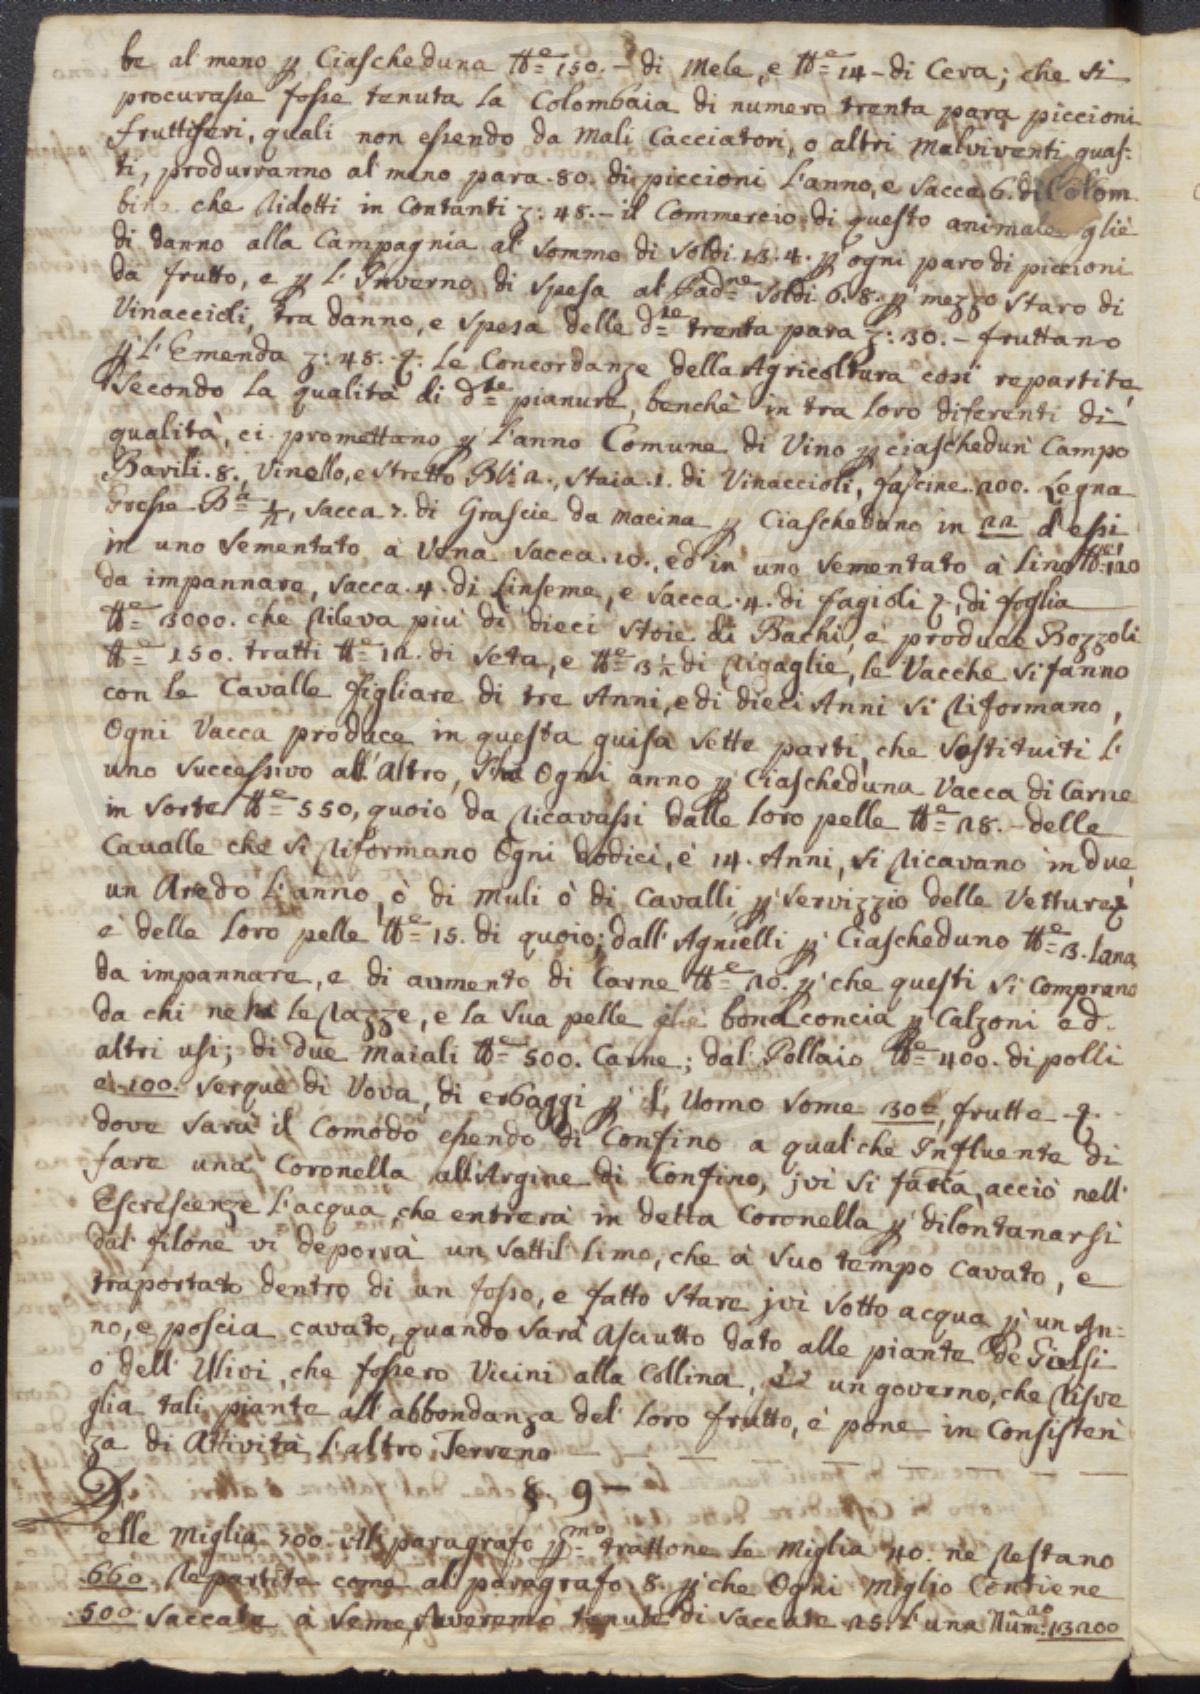 be al meno ꝑ Ciascheduna ₶e 150. – di Mele, e ₶e 14 – di Cera; che si
procurasse fosse tenuta la Colombaia di numero trenta para piccioni
fruttiferi, quali non essendo da Mali Cacciatori, o altri Malviventi guas=
ti, produrranno al meno para 80. di piccioni l'anno, e Sacca 6. di Colom
bina che ridotti in Contanti z: 48. – il Commercio di questo animale gliè
di danno alla Campagnia al sommo di Soldi 13.4. ꝑ ogni paro di piccioni
da frutto, e ꝑ l'Inverno di spesa al Padne Soldi 6.8. ꝑ mezzo Staro di
Vinaccioli, tra danno, e spesa delle dte trenta para z: 30. – fruttano
ꝑ l'Emenda z: 48. Le Concordanze della Agricoltura così repartite
Secondo la qualità di dte pianure, benchè in tra loro diferenti di
qualità, ci promettano ꝑ l'anno Comune di Vino ꝑ ciaschedun Campo
Barili 8., Vinello, e stretto Bli 2., Staia 1. di Vinaccioli, fascine 200. Legna
Grossa Ba ½, Sacca 7. di Grascie da macina ꝑ Ciascheduno in 22 d'essi
in uno Sementato à Vena Sacca 10., ed in uno Sementato à Lino ₶e 120
da impannare, Sacca 4. di Linseme, e Sacca 4. di fagioli, di foglia
₶e 3000. che rileva più di dieci Stoie di Bachi, e produce Bozzoli
₶e 150. tratti ₶e 12. di Seta, e ₶e 3½ di rigaglie, le Vacche si fanno
con le Cavalle figliare di tre Anni, e di dieci Anni si riformano,
Ogni Vacca produce in questa guisa sette parti, che sostituiti l'
uno successivo all'Altro, Ogni anno ꝑ Ciascheduna Vacca di Carne
in sorte ₶e 550, quoio da ricavassi dalle loro pelle ₶e 28. – delle
Cavalle che si riformano Ogni dodici, è 14. Anni, si ricavano in due
un Aredo l'anno, ò di Muli ò di Cavalli ꝑ servizzio delle Vetture
e delle loro pelle ₶e 15. di quoio; dall'Agnielli ꝑ Ciascheduno ₶e 3. Lana
da impannare, e di aumento di Carne ₶e 20. ꝑ che questi si comprano
da chi ne hà le razze, e la sua pelle gliè bona concia ꝑ Calzoni ed
altri usi; di due Maiali ₶e 500. Carne; dal Pollaio ₶e 400. di polli
e 100. serque di Vova, di erbaggi ꝑ l'Uomo some 30, frutte
dove sarà il Comodo essendo di Confino a qualche Influente di
fare una Coronella all'Argine di Confino, jvi si faccia, acciò nell'
Escrescenze l'acqua, che entrerà in detta Coronella ꝑ dilontanarsi
dal filone vi deporrà un sottil limo, che à suo tempo cavato, e
traportato dentro di un fosso, e fatto stare jvi sotto acqua ꝑ un An=
no, e poscia cavato, quando sarà Asciutto dato alle piante de Gielsi
ò dell'Ulivi, che fossero Vicini alla Collina, è un governo, che risve
glia tali piante all'abbondanza del loro frutto, è pone in Consisten
za di Attività l'altro Terreno
§. 9 –
Delle Miglia 700. Al paragrafo ꝑmo trattone le Miglia 40. ne restano
660 repartite come al paragrafo 8. ꝑ che Ogni miglio Contiene
500 Saccate à seme, averemo tenute di Saccate 25. l'una Num.o 13200